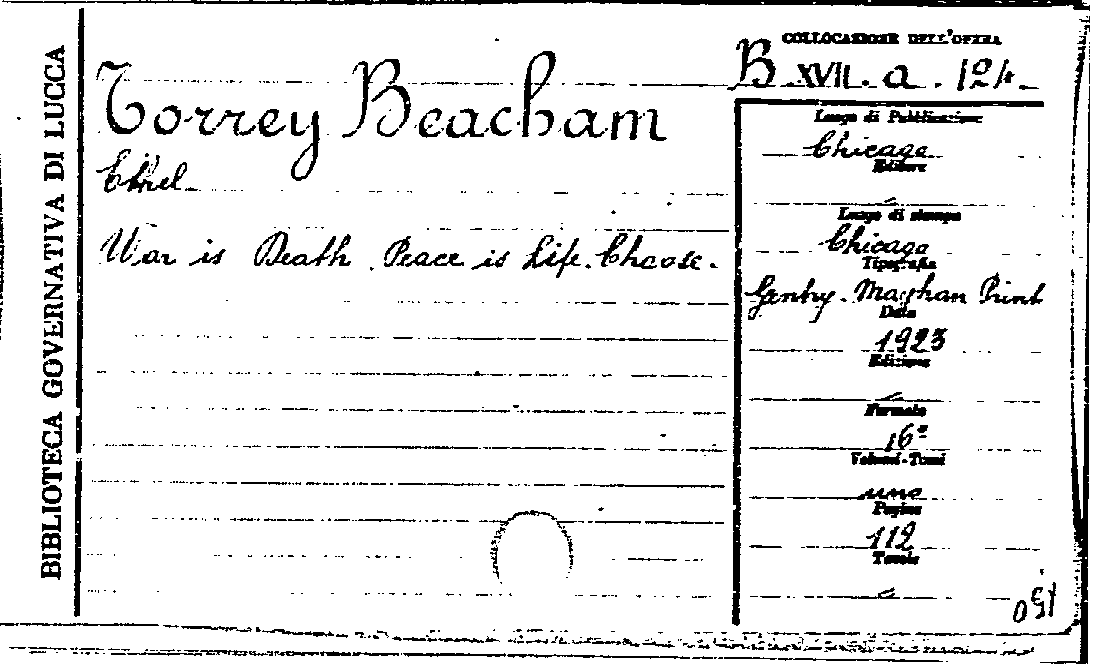 BIBLIOTECA GOVERNATIVA DI LUCCA
Torrey Beacham
Ethel
War is Death. Peace is Life. Choose.
COLLOCAZIONE DELL'OPERA
B. XVII. a. 124.
Luogo di Pubblicazione
Chicago
Editore
Luogo di stampa
Chicago
Tipografia
Gentry. Maghan Print
Data
1923
Edizione
Formato
16°
Volumi-Tomi
uno
Pagine
112
Tavole